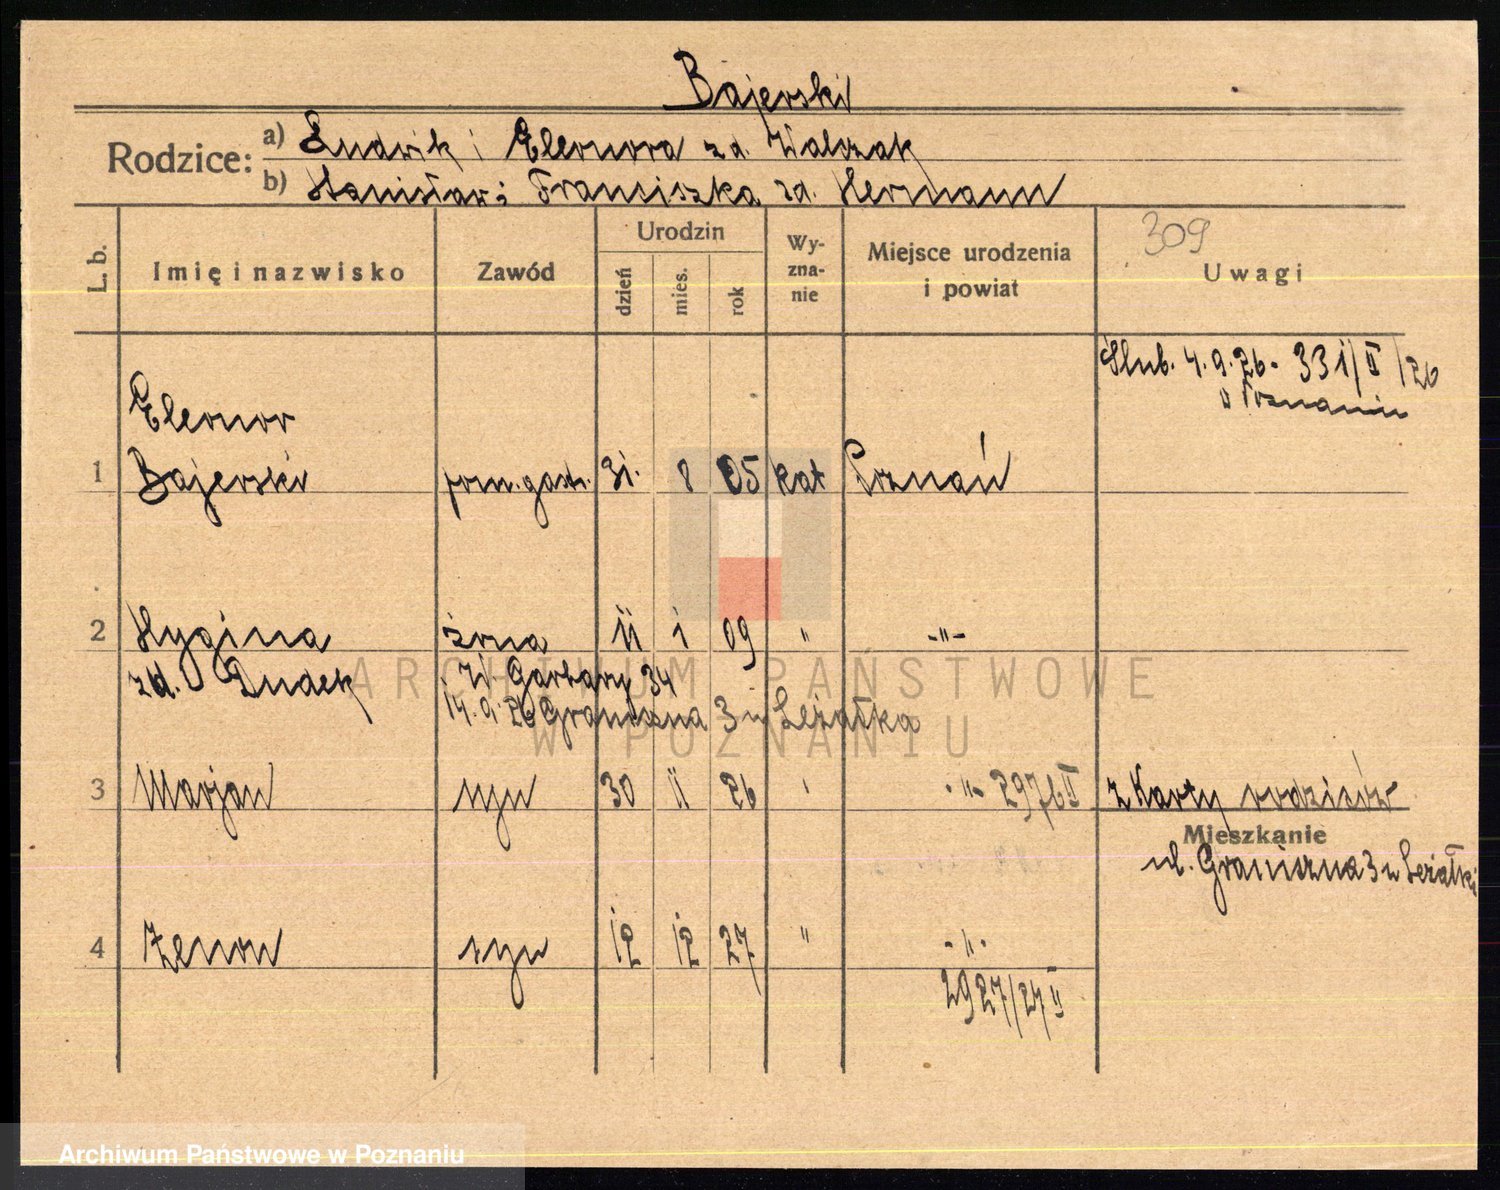 Bajerski
Rodzice: a) Ludwik i Eleonora zd. Walczak
b) Stanisław i Franciszka zd. Hermann
L. b. Imię i nazwisko Zawód Urodzin dzień mies. rok Wyznanie Miejsce urodzenia i powiat Uwagi
309
Ślub. 4.9.26 - 331/II/26
w Poznaniu
Eleonor
1 Bajerski pom. gastr. 31. 8 05 kat Poznań
2 Hygina żona 11 1 09 " -"-
zd. Dudek W. Garbary 34
14.9.26 Graniczna 3 u Leżałka
3 Marjan syn 30 11 26 " -"- 2976 II z Karty rodziców
Mieszkanie
ul. Graniczna 3 u Leżałki
4 Zenon syn 12 12 27 " -"-
2927/27 II
ARCHIWUM PAŃSTWOWE
W POZNANIU
Archiwum Państwowe w Poznaniu